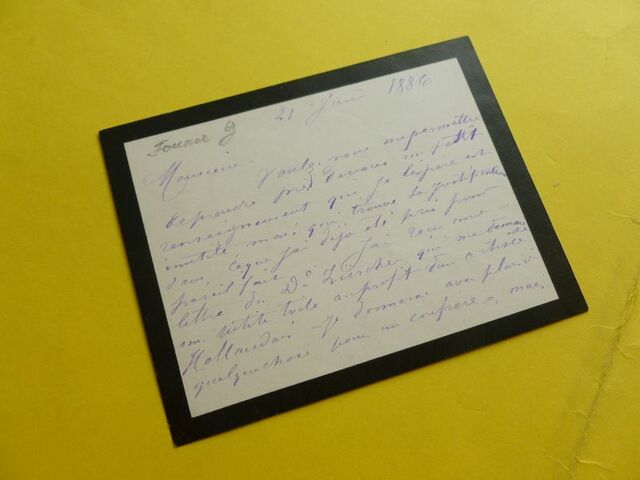 21 Juin 1886
Monsieur.
Voulez vous me permettre
de prendre près de vous un petit
renseignement qui je l'espère est
inutile mais qui trouve sa justification
dans ce que j'ai déjà été pris pour
pareil fait. J'ai reçu une
lettre du Dr Zürcher qui me demande
une petite toile au profit d'un artiste
Hollandais. Je donnerai avec plaisir
quelque chose pour un confrère, mais